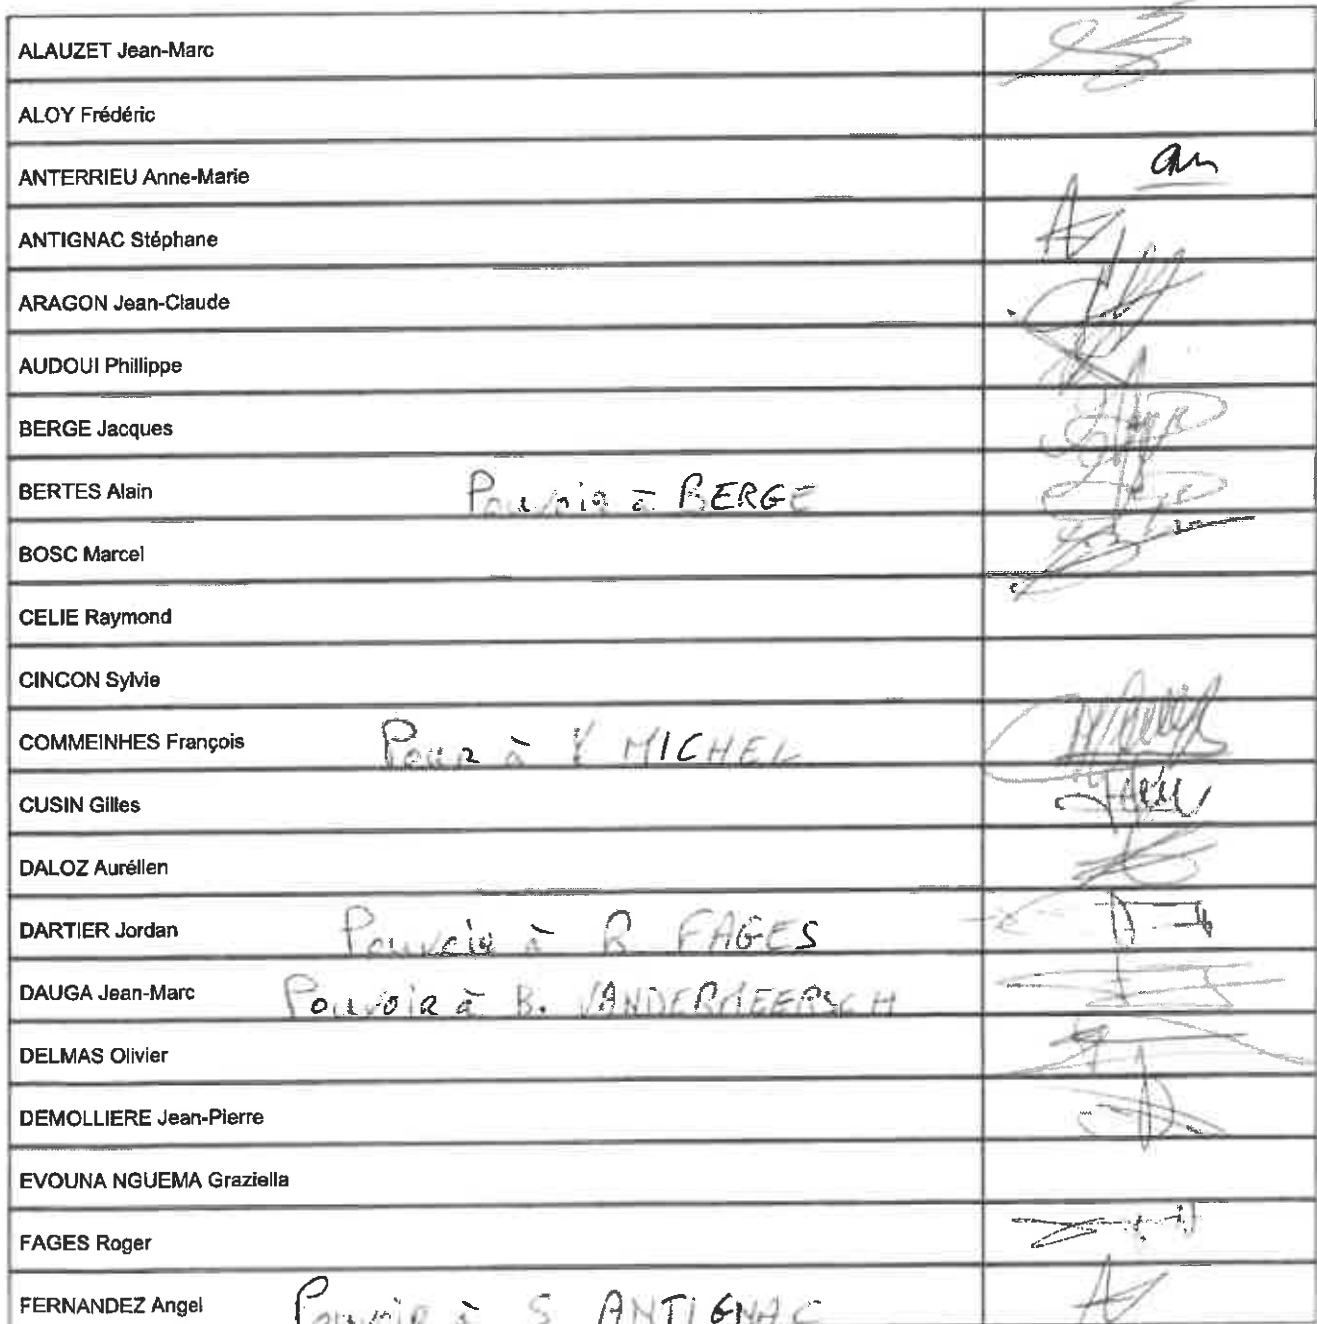 ALAUZET Jean-Marc
ALOY Frédéric
ANTERRIEU Anne-Marie
ANTIGNAC Stéphane
ARAGON Jean-Claude
AUDOUI Phillippe
BERGE Jacques
BERTES Alain Pouvoir à BERGE
BOSC Marcel
CELIE Raymond
CINCON Sylvie
COMMEINHES François Pour à Y MICHEL
CUSIN Gilles
DALOZ Aurélien
DARTIER Jordan Pouvoir à R FAGES
DAUGA Jean-Marc Pouvoir à B. VANDERMEERSCH
DELMAS Olivier
DEMOLLIERE Jean-Pierre
EVOUNA NGUEMA Graziella
FAGES Roger
FERNANDEZ Angel Pouvoir à S ANTIGNAC